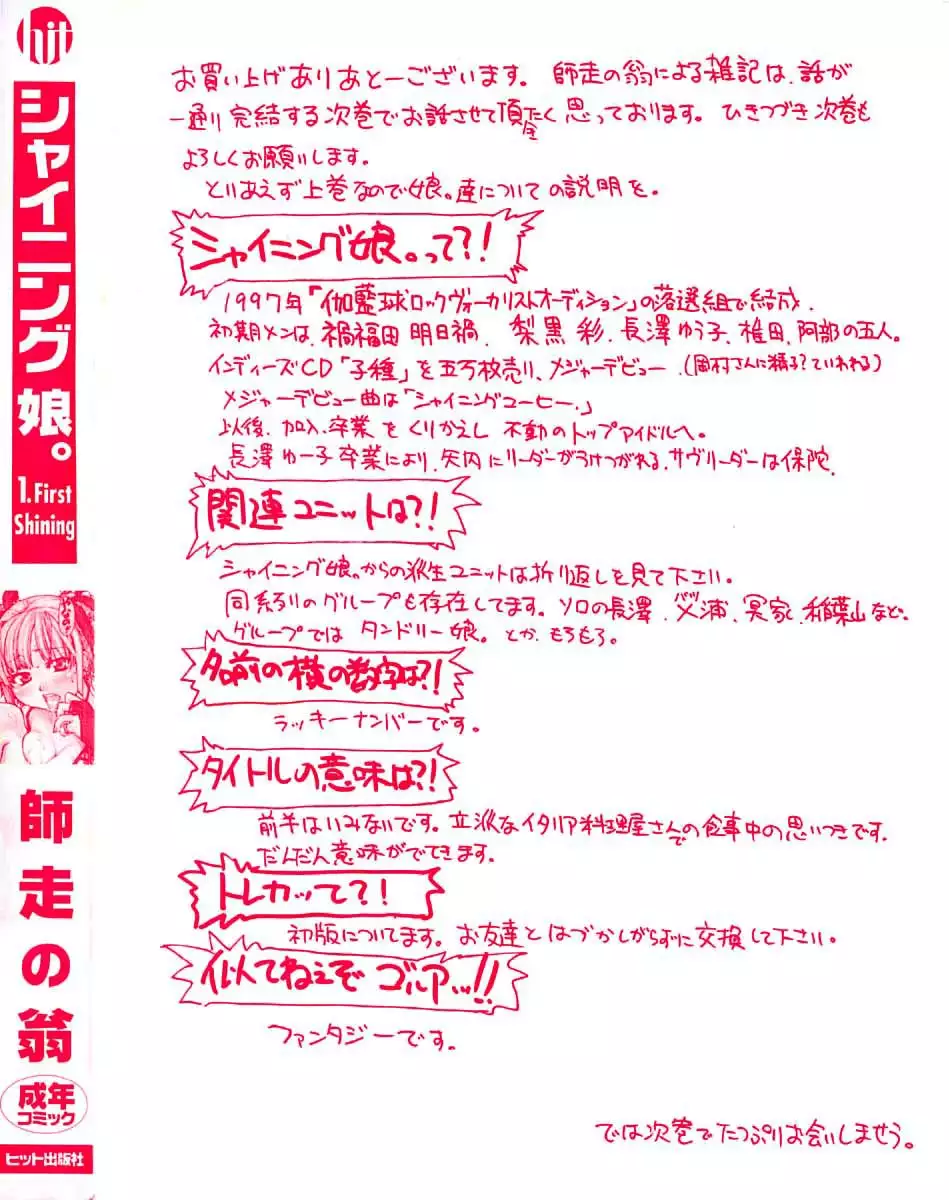 hit
シャイニング娘。
1.First
Shining
師走の翁
成年
コミック
ヒット出版社
お買い上げありあとーございます。 師走の翁による雑記は、話が
一通り完結する次巻でお話させて頂たく思っております。 ひきつづき次巻も
よろしくお願いします。
とりあえず上巻なので娘。達についての説明を。
シャイニング娘。って?!
1997年「伽藍球ロックヴォーカリストオーディション」の落選組で結成。
初期メンは、禍福田 明日禍、 梨黒 彩、長澤ゆう子、椎田、阿部の五人。
インディーズCD「子種」を五万枚売り、メジャーデビュー。(岡村さんに精子?ていわれる)
メジャーデビュー曲は「シャイニングコーヒー。」
以後、加入、卒業をくりかえし 不動のトップアイドルへ。
長澤ゆー子卒業により、矢内にリーダーがうけつがれる、サヴリーダーは保陀。
関連ユニットは?!
シャイニング娘。からの派生ユニットは折り返しを見て下さい。
同系列のグループも存在してます。ソロの長澤、 浦、冥家、稲葉山など。
グループでは タンドリー娘。とか、もろもろ。
名前の横の数字は?!
ラッキーナンバーです。
タイトルの意味は?!
前半はいみないです。立派なイタリア料理屋さんでの食事中の思いつきです。
だんだん意味がでてきます。
トレカッて?!
初版についてます。お友達とはづかしがらずに交換して下さい。
似てねぇぞ ゴルアッ!!
ファンタジーです。
では次巻でたっぷりお会いしませう。